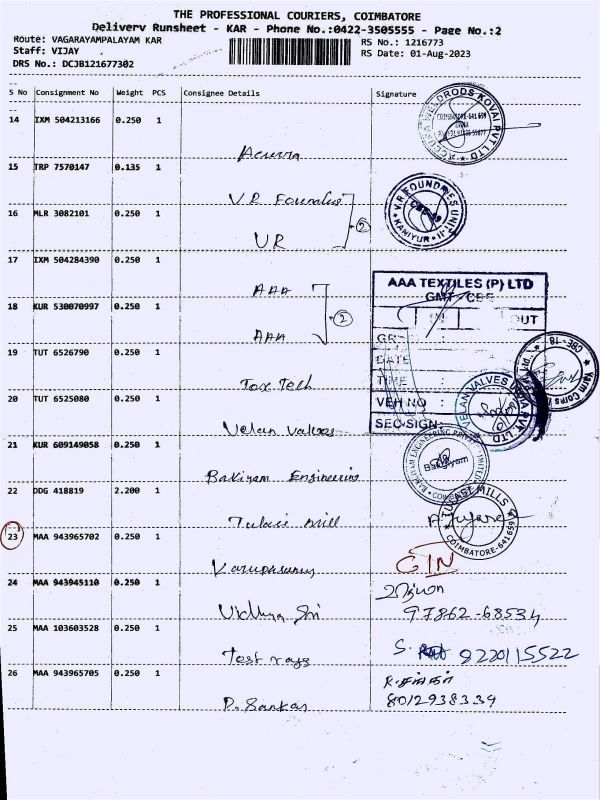 THE PROFESSIONAL COURIERS, COIMBATORE
Delivery Runsheet - KAR - Phone No.:0422-3505555 - Page No.:2
Route: VAGARAYAMPALAYAM KAR
RS No.: 1216773
Staff: VIJAY
RS Date: 01-Aug-2023
DRS No.: DCJB121677302
S No Consignment No Weight PCS Consignee Details Signature
14 IXM 504213166 0.250 1
Acurra
15 TRP 7570147 0.135 1
V.R Foundries
16 MLR 3082101 0.250 1
VR
2
V.R FOUNDRIES UNIT-II
KANIYUR
17 IXM 504284390 0.250 1
AAA
18 KUR 530070997 0.250 1
AAA
2
AAA TEXTILES (P) LTD
GMT - CBE
IN OUT
GR
DATE
TIME
VEH NO :
SEC-SIGN:
19 TUT 6526790 0.250 1
Tex Tech
20 TUT 6525080 0.250 1
Velan Valves
VELAN VALVES INDIA PVT. LTD
21 KUR 609149058 0.250 1
Bakiyam Engineering
Bakiyam
22 DDG 418819 2.200 1
Tulasi Mill
COIMBATORE-641 659
23 MAA 943965702 0.250 1
Karuppasamy
GIN
24 MAA 943945110 0.250 1
Vidhya Sri
97862-68534
25 MAA 103603528 0.250 1
Test rays
S. 9220115522
26 MAA 943965705 0.250 1
P. Sankar
8012938339